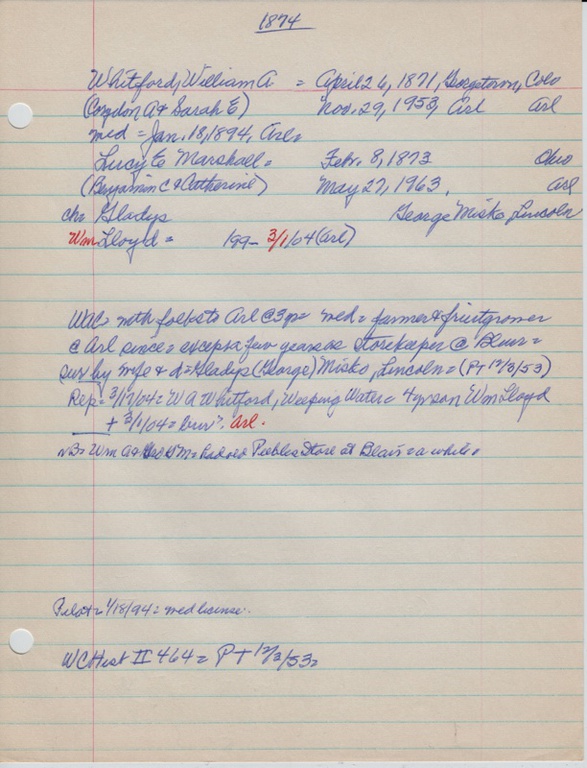 1874
Whitford, William A = April 26, 1871, Georgetown, Colo
(Corydon A & Sarah E) Nov. 29, 1953, Arl Arl
med = Jan. 18, 1894, Arl=
Lucy E Marshall = Febr. 8, 1873 Ohio
(Benjamin C & Catherine) May 27, 1963, Arl
ch= Gladys George Misko, Lincoln
Wm Lloyd = 199- 3/1/04 (Arl)
WAW with folks to Arl @ 3 = med = farmer & fruitgrower
@ Arl since = except a few years as storekeeper @ Blair =
surv by wife & d = Gladys (George) Misko, Lincoln = (PT 12/3/53)
Rep = 3/17/04 = W A Whitford, Weeping Water = 4 yr son Wm Lloyd
+ 3/1/04 = bur. Arl.
NB = Wm A & M = had Peebles Store at Blair = a while =
Pilot = 1/18/94 = med license.
WCHist II 464 = PT 12/3/53 =